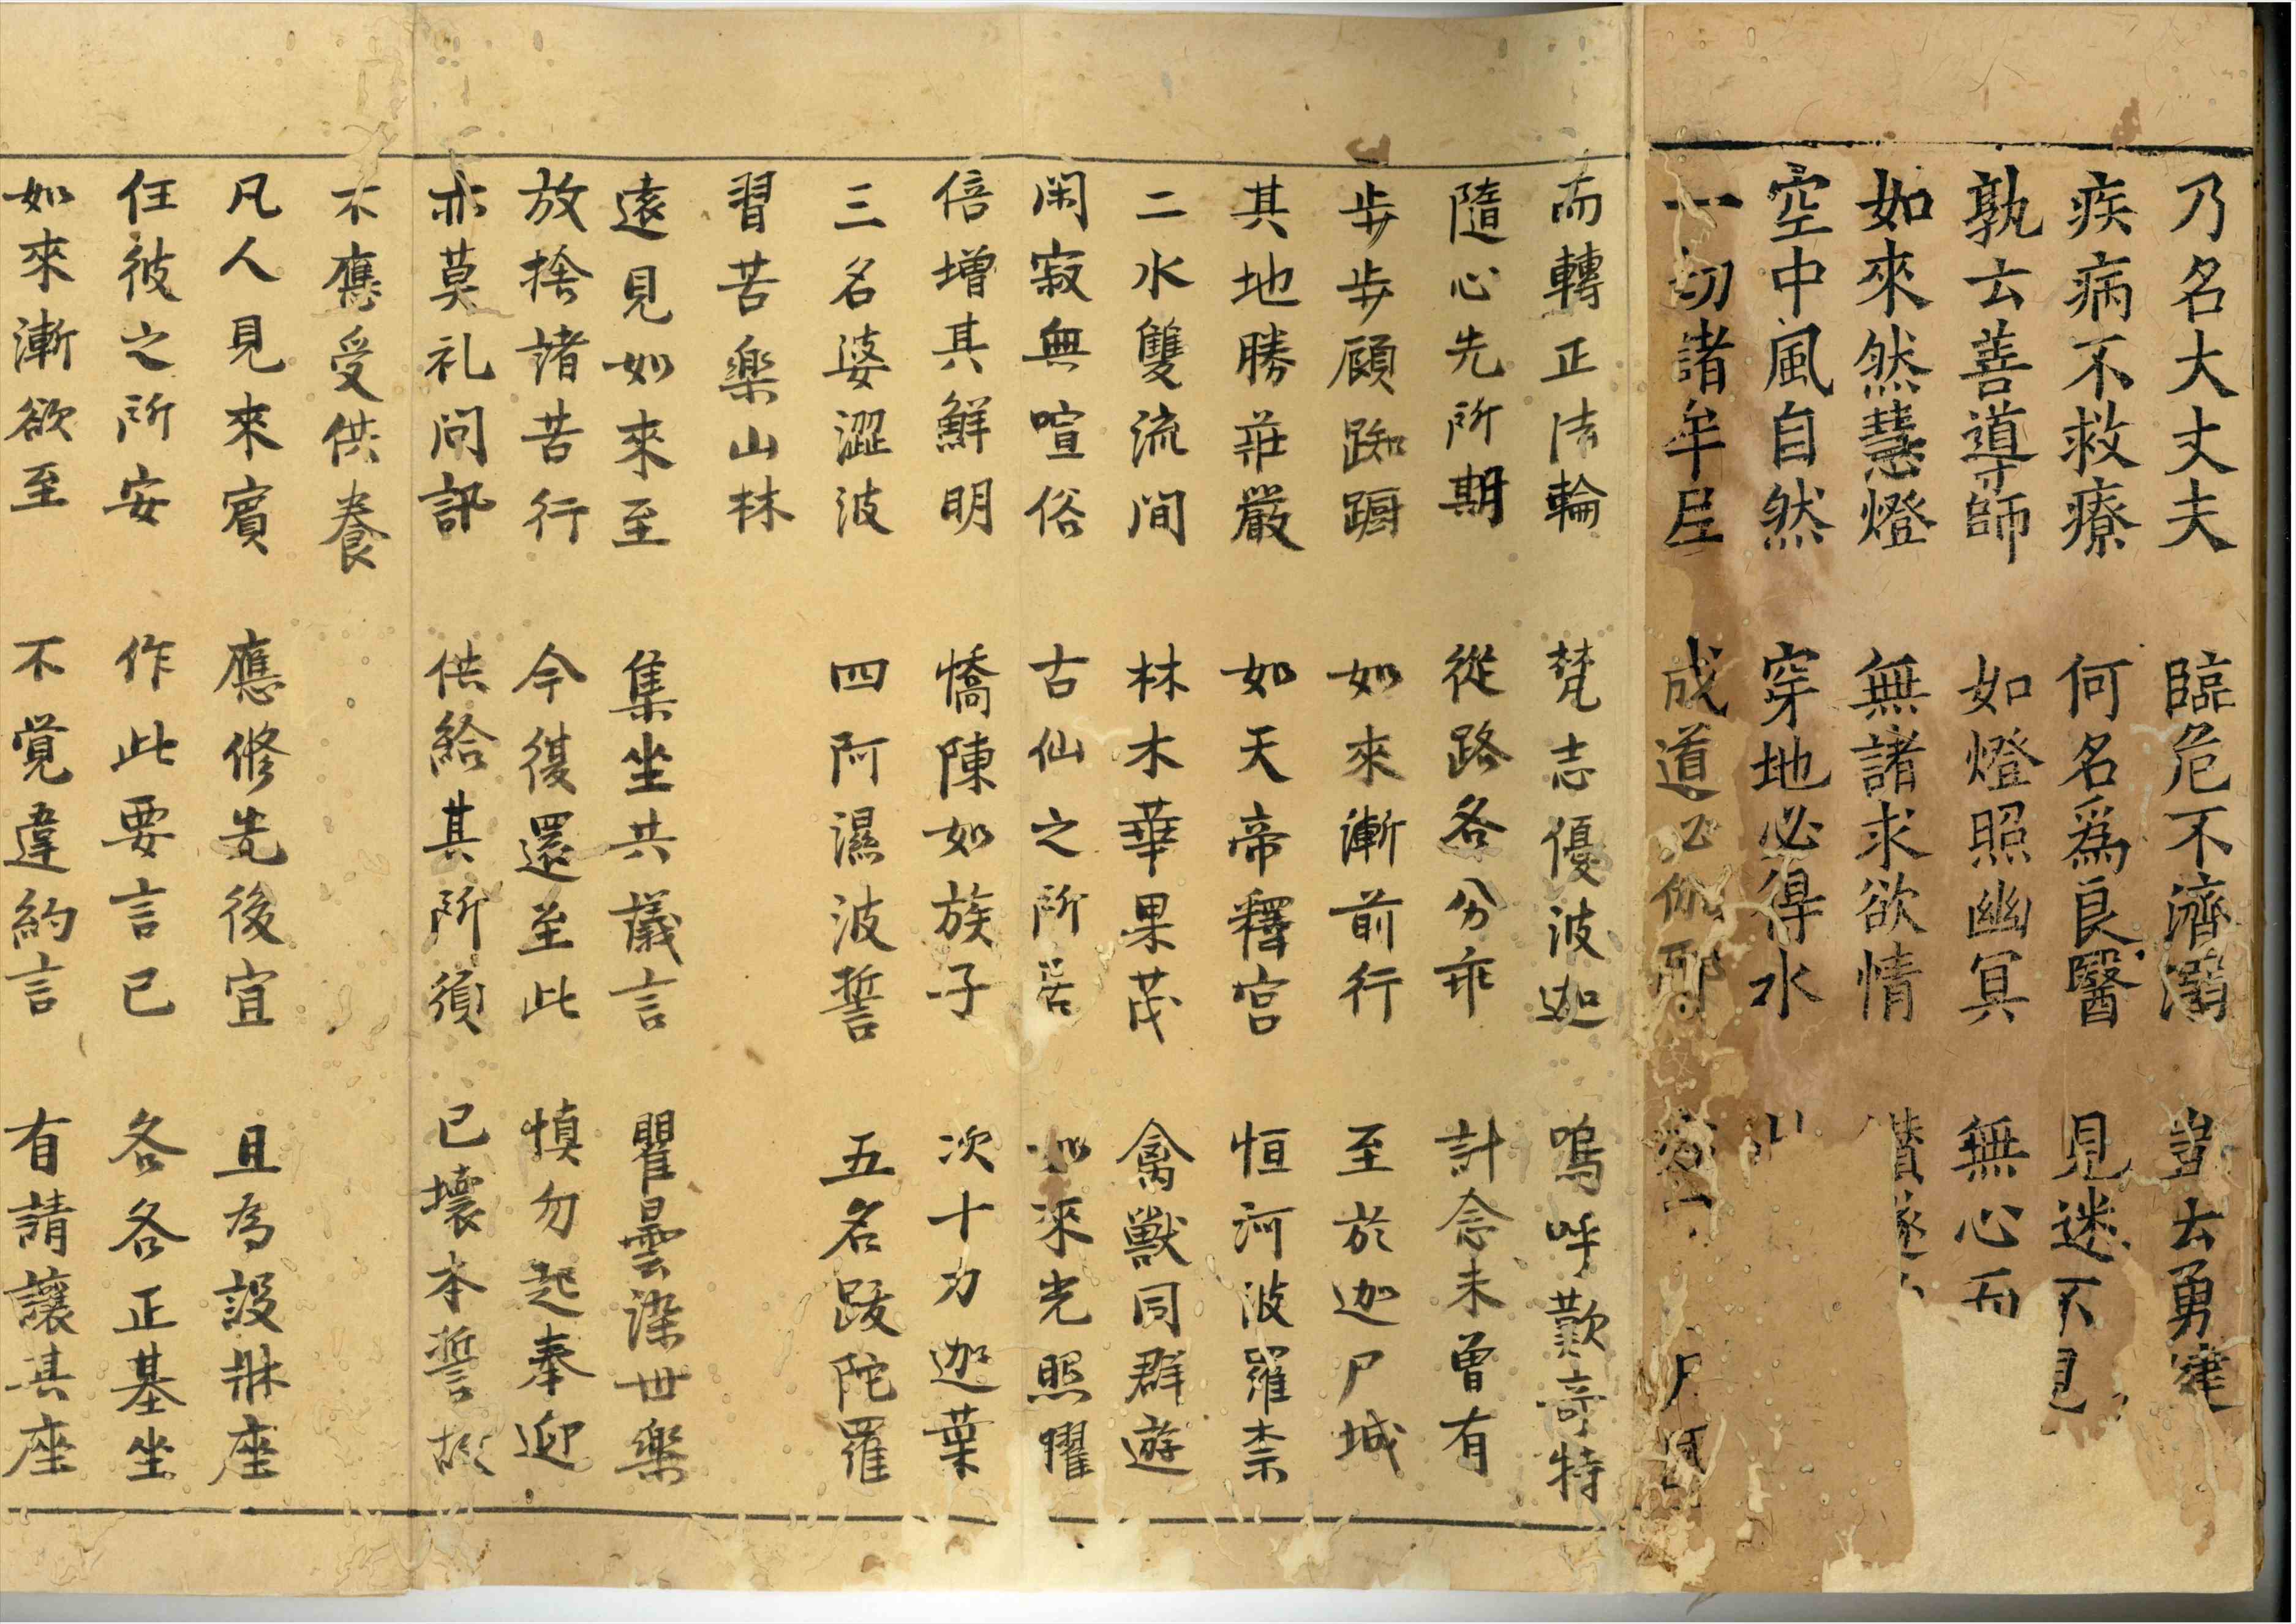 乃名大丈夫　臨危不濟溺　豈云勇健
疾病不救療　何名爲良醫　見迷不見
孰云善導師　如燈照幽冥　無心而
如來然慧燈　無諸求欲情
空中風自然　穿地必得水
一切諸牟尼　成道必伽耶
而轉正法輪　梵志優波迦　嗚呼歎奇特
隨心先所期　從路各分乖　計念未曾有
步步顧踟蹰　如來漸前行　至於迦尸城
其地勝莊嚴　如天帝釋宮　恒河波羅柰
二水雙流間　林木華果茂　禽獸同群遊
閑寂無喧俗　古仙之所居　如來光照曜
倍增其鮮明　憍陳如族子　次十力迦葉
三名婆澀波　四阿濕波誓　五名跋陀羅
習苦樂山林
遠見如來至　集坐共議言　瞿曇染世樂
放捨諸苦行　今復還至此　慎勿起奉迎
亦莫礼問訊　供給其所須　已壞本誓故
不應受供養
凡人見來賓　應修先後宜　且為設牀座
任彼之所安　作此要言已　各各正基坐
如來漸欲至　不覚違約言　有請讓其座